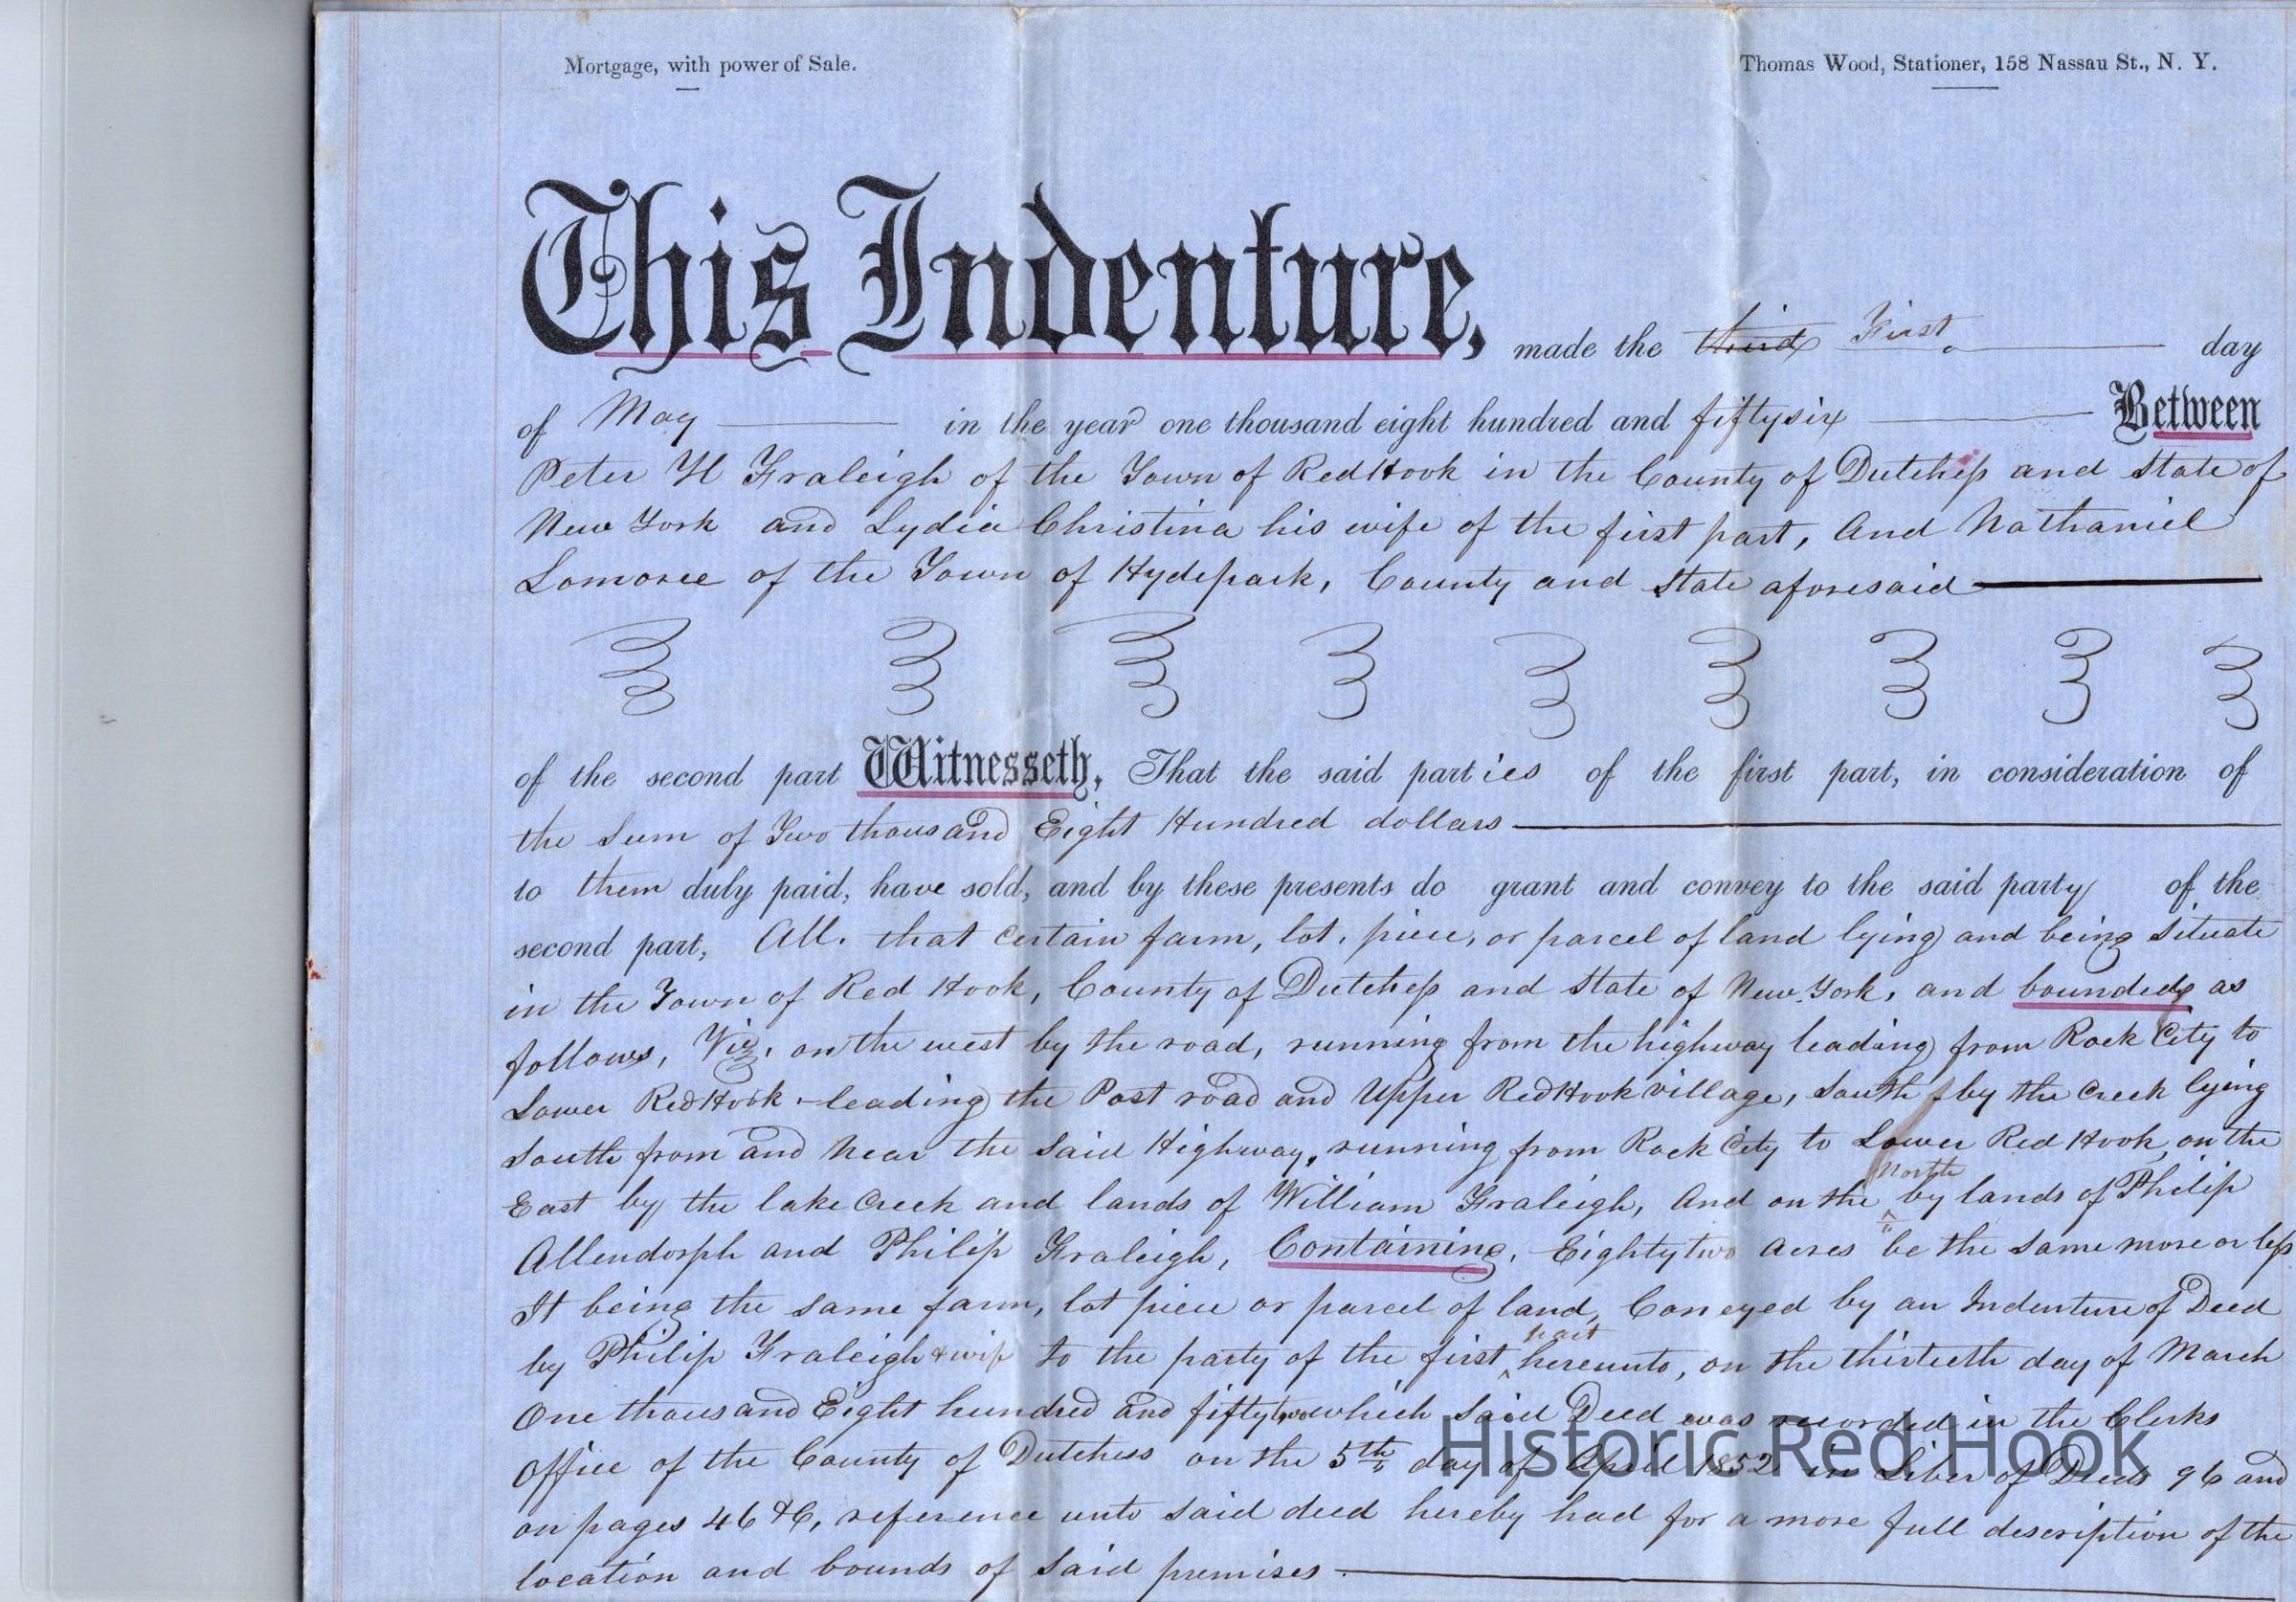 Mortgage, with power of Sale.
Thomas Wood, Stationer, 158 Nassau St., N. Y.
This Indenture, made the third First day
of May in the year one thousand eight hundred and fiftysix Between
Peter H Fraleigh of the Town of Red Hook in the County of Dutchess and State of
New York and Lydia Christina his wife of the first part, And Nathaniel
Lomoree of the Town of Hydepark, County and State aforesaid
of the second part Witnesseth, That the said parties of the first part, in consideration of
the Sum of Two thousand Eight Hundred dollars
to them duly paid, have sold, and by these presents do grant and convey to the said party of the
second part, All. that certain farm, lot, piece, or parcel of land lying and being Situate
in the Town of Red Hook, County of Dutchess and State of New York, and bounded as
follows, Viz, on the west by the road, running from the highway leading from Rock City to
Lower Red Hook leading the Post road and Upper Red Hook village, South by the Creek lying
South from and near the said Highway, running from Rock City to Lower Red Hook, on the
East by the lake Creek and lands of William Fraleigh, And on the North by lands of Philip
Allendorph and Philip Fraleigh, Containing, Eightytwo Acres be the same more or less
It being the same farm, lot piece or parcel of land, Coneyed by an Indenture of Deed
by Philip Fraleigh & wife to the party of the first part hereunto, on the thirtieth day of March
One thousand Eight hundred and fiftytwo which Said Deed was recorded in the Clerks
Office of the County of Dutchess on the 5th day of April 1852 in Liber of Deeds 96 and
on pages 46 &C, reference unto said deed hereby had for a more full description of the
location and bounds of said premises
Historic Red Hook